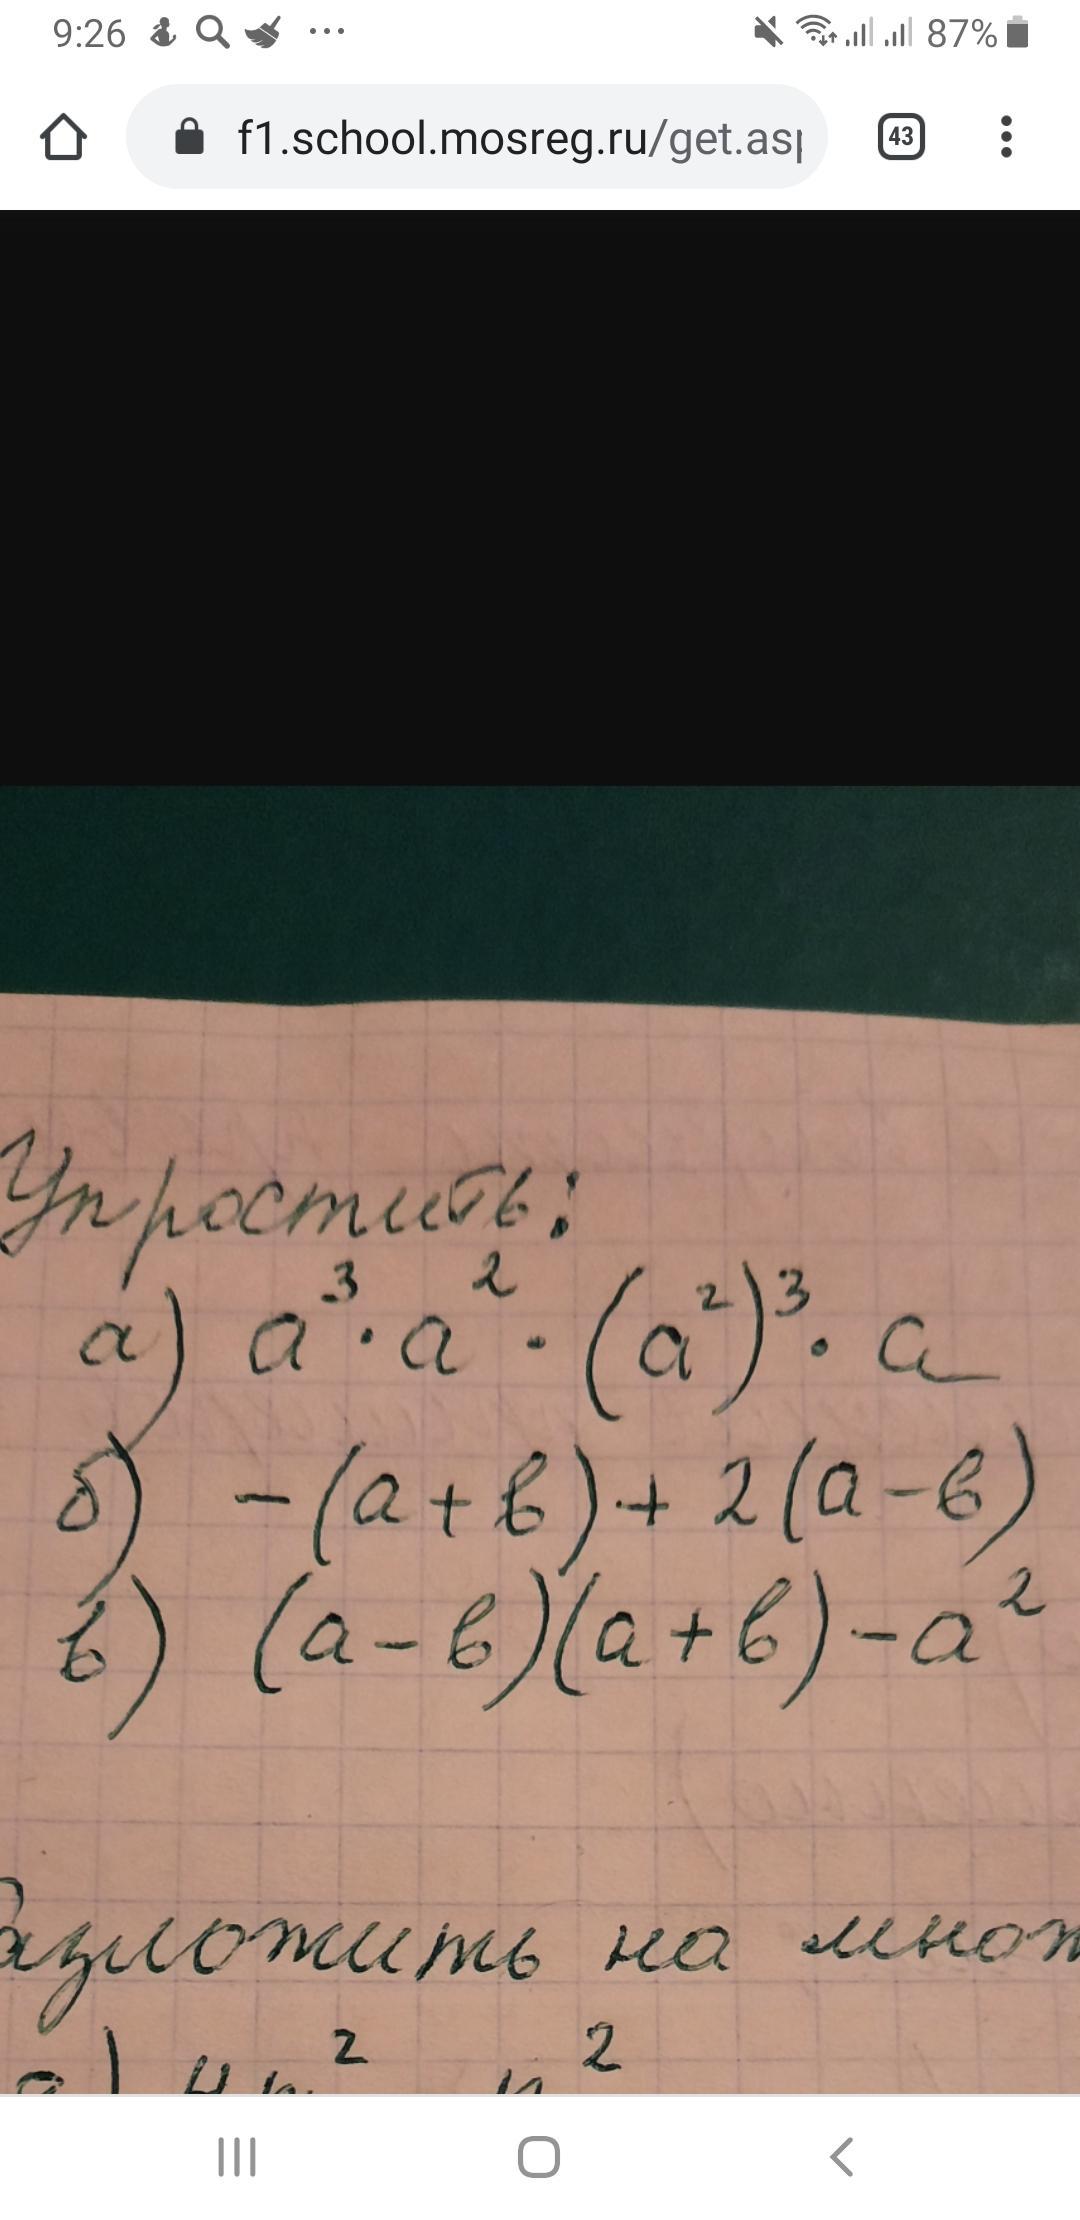 9:26 ... 87%
f1.school.mosreg.ru/get.asp 43
Упростить:
а) a³ · a² · (a²)³ · a
б) -(a+b)+2(a-b)
в) (a-b)(a+b)-a²
азложить на множ